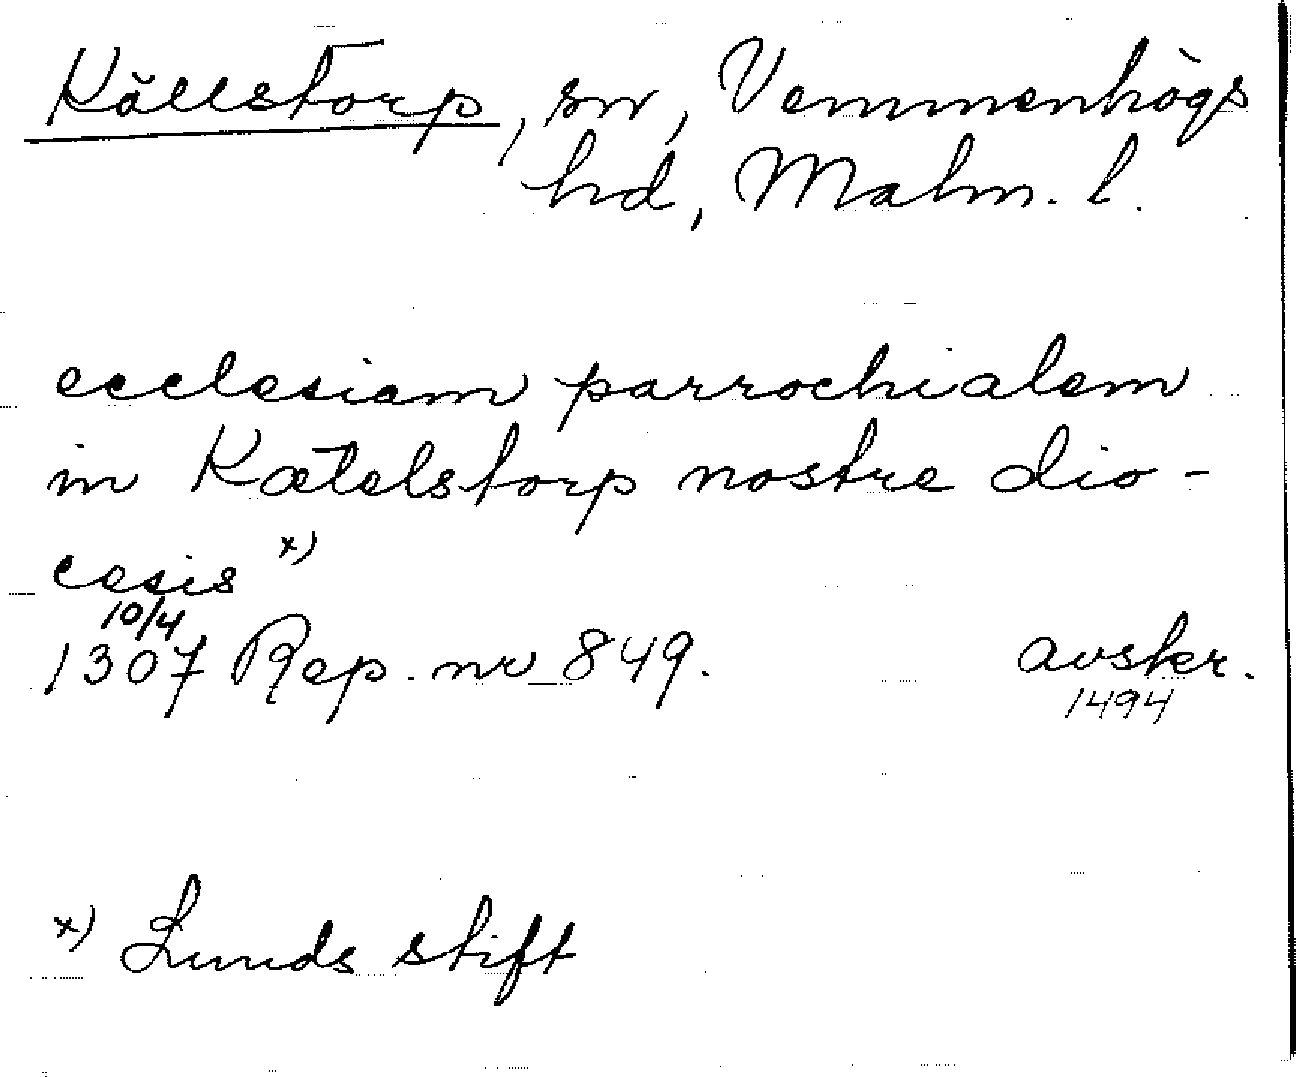 Källstorp, sn, Vemmenhögs
hd, Malm. l.
ecclesiam parrochialem
in Kætelstorp nostre dio-
cesis x)
10/4
1307 Rep. nr 849. avskr.
1494
x) Lunds stift